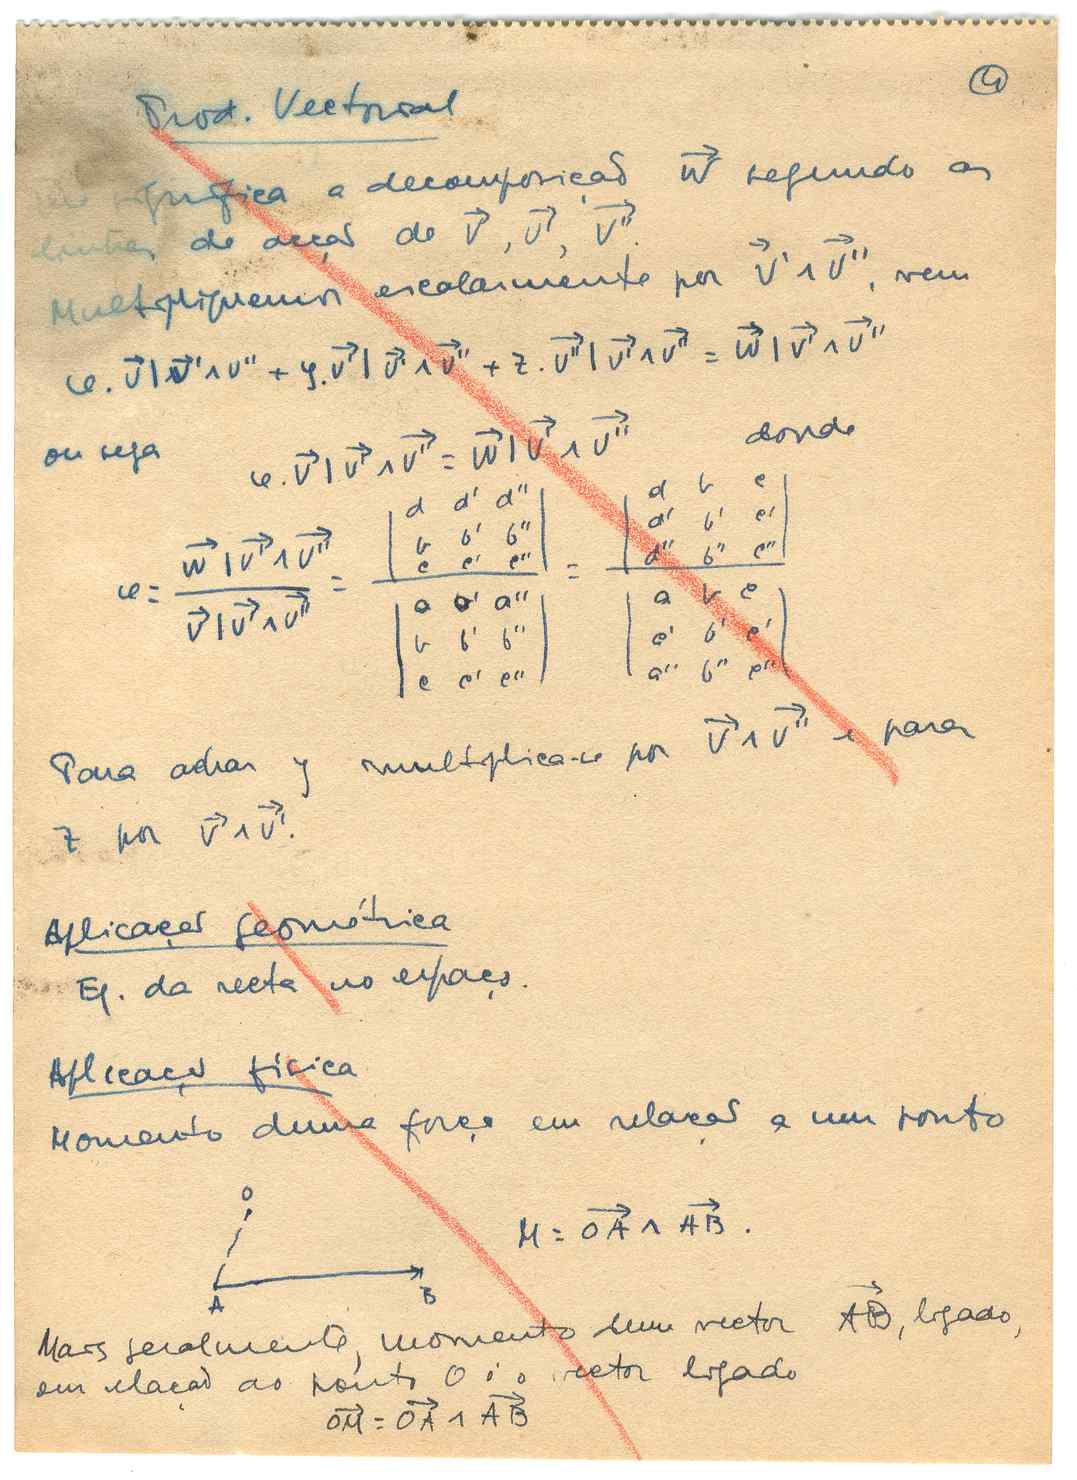 ④
Prod. Vectorial
significa a decomposição \vec{W} segundo as
linhas de acção de \vec{V}, \vec{V'}, \vec{V''}.
Multipliquemos escalarmente por \vec{V'} ∧ \vec{V''}, vem
x. \vec{V} | \vec{V'} ∧ V'' + y. \vec{V'} | \vec{V'} ∧ \vec{V''} + z. \vec{V''} | \vec{V'} ∧ \vec{V''} = \vec{W} | \vec{V'} ∧ \vec{V''}
ou seja x. \vec{V} | \vec{V'} ∧ \vec{V''} = \vec{W} | \vec{V'} ∧ \vec{V''} donde
x = \frac{\vec{W} | \vec{V'} ∧ \vec{V''}}{\vec{V} | \vec{V'} ∧ \vec{V''}} = \frac{\begin{vmatrix} d & d' & d'' \\ b & b' & b'' \\ c & c' & c'' \end{vmatrix}}{\begin{vmatrix} a & a' & a'' \\ b & b' & b'' \\ c & c' & c'' \end{vmatrix}} = \frac{\begin{vmatrix} d & b & c \\ d' & b' & c' \\ d'' & b'' & c'' \end{vmatrix}}{\begin{vmatrix} a & b & c \\ a' & b' & c' \\ a'' & b'' & c'' \end{vmatrix}}
Para achar y multiplica-se por \vec{V} ∧ \vec{V''} e para
z por \vec{V} ∧ \vec{V'}.
Aplicação geométrica
Eq. da recta no espaço.
Aplicação física
Momento duma força em relação a um ponto
O
M = \vec{OA} ∧ \vec{AB}.
A B
Mais geralmente, momento dum vector \vec{AB}, ligado,
em relação ao ponto O é o vector ligado
\vec{OM} = \vec{OA} ∧ \vec{AB}